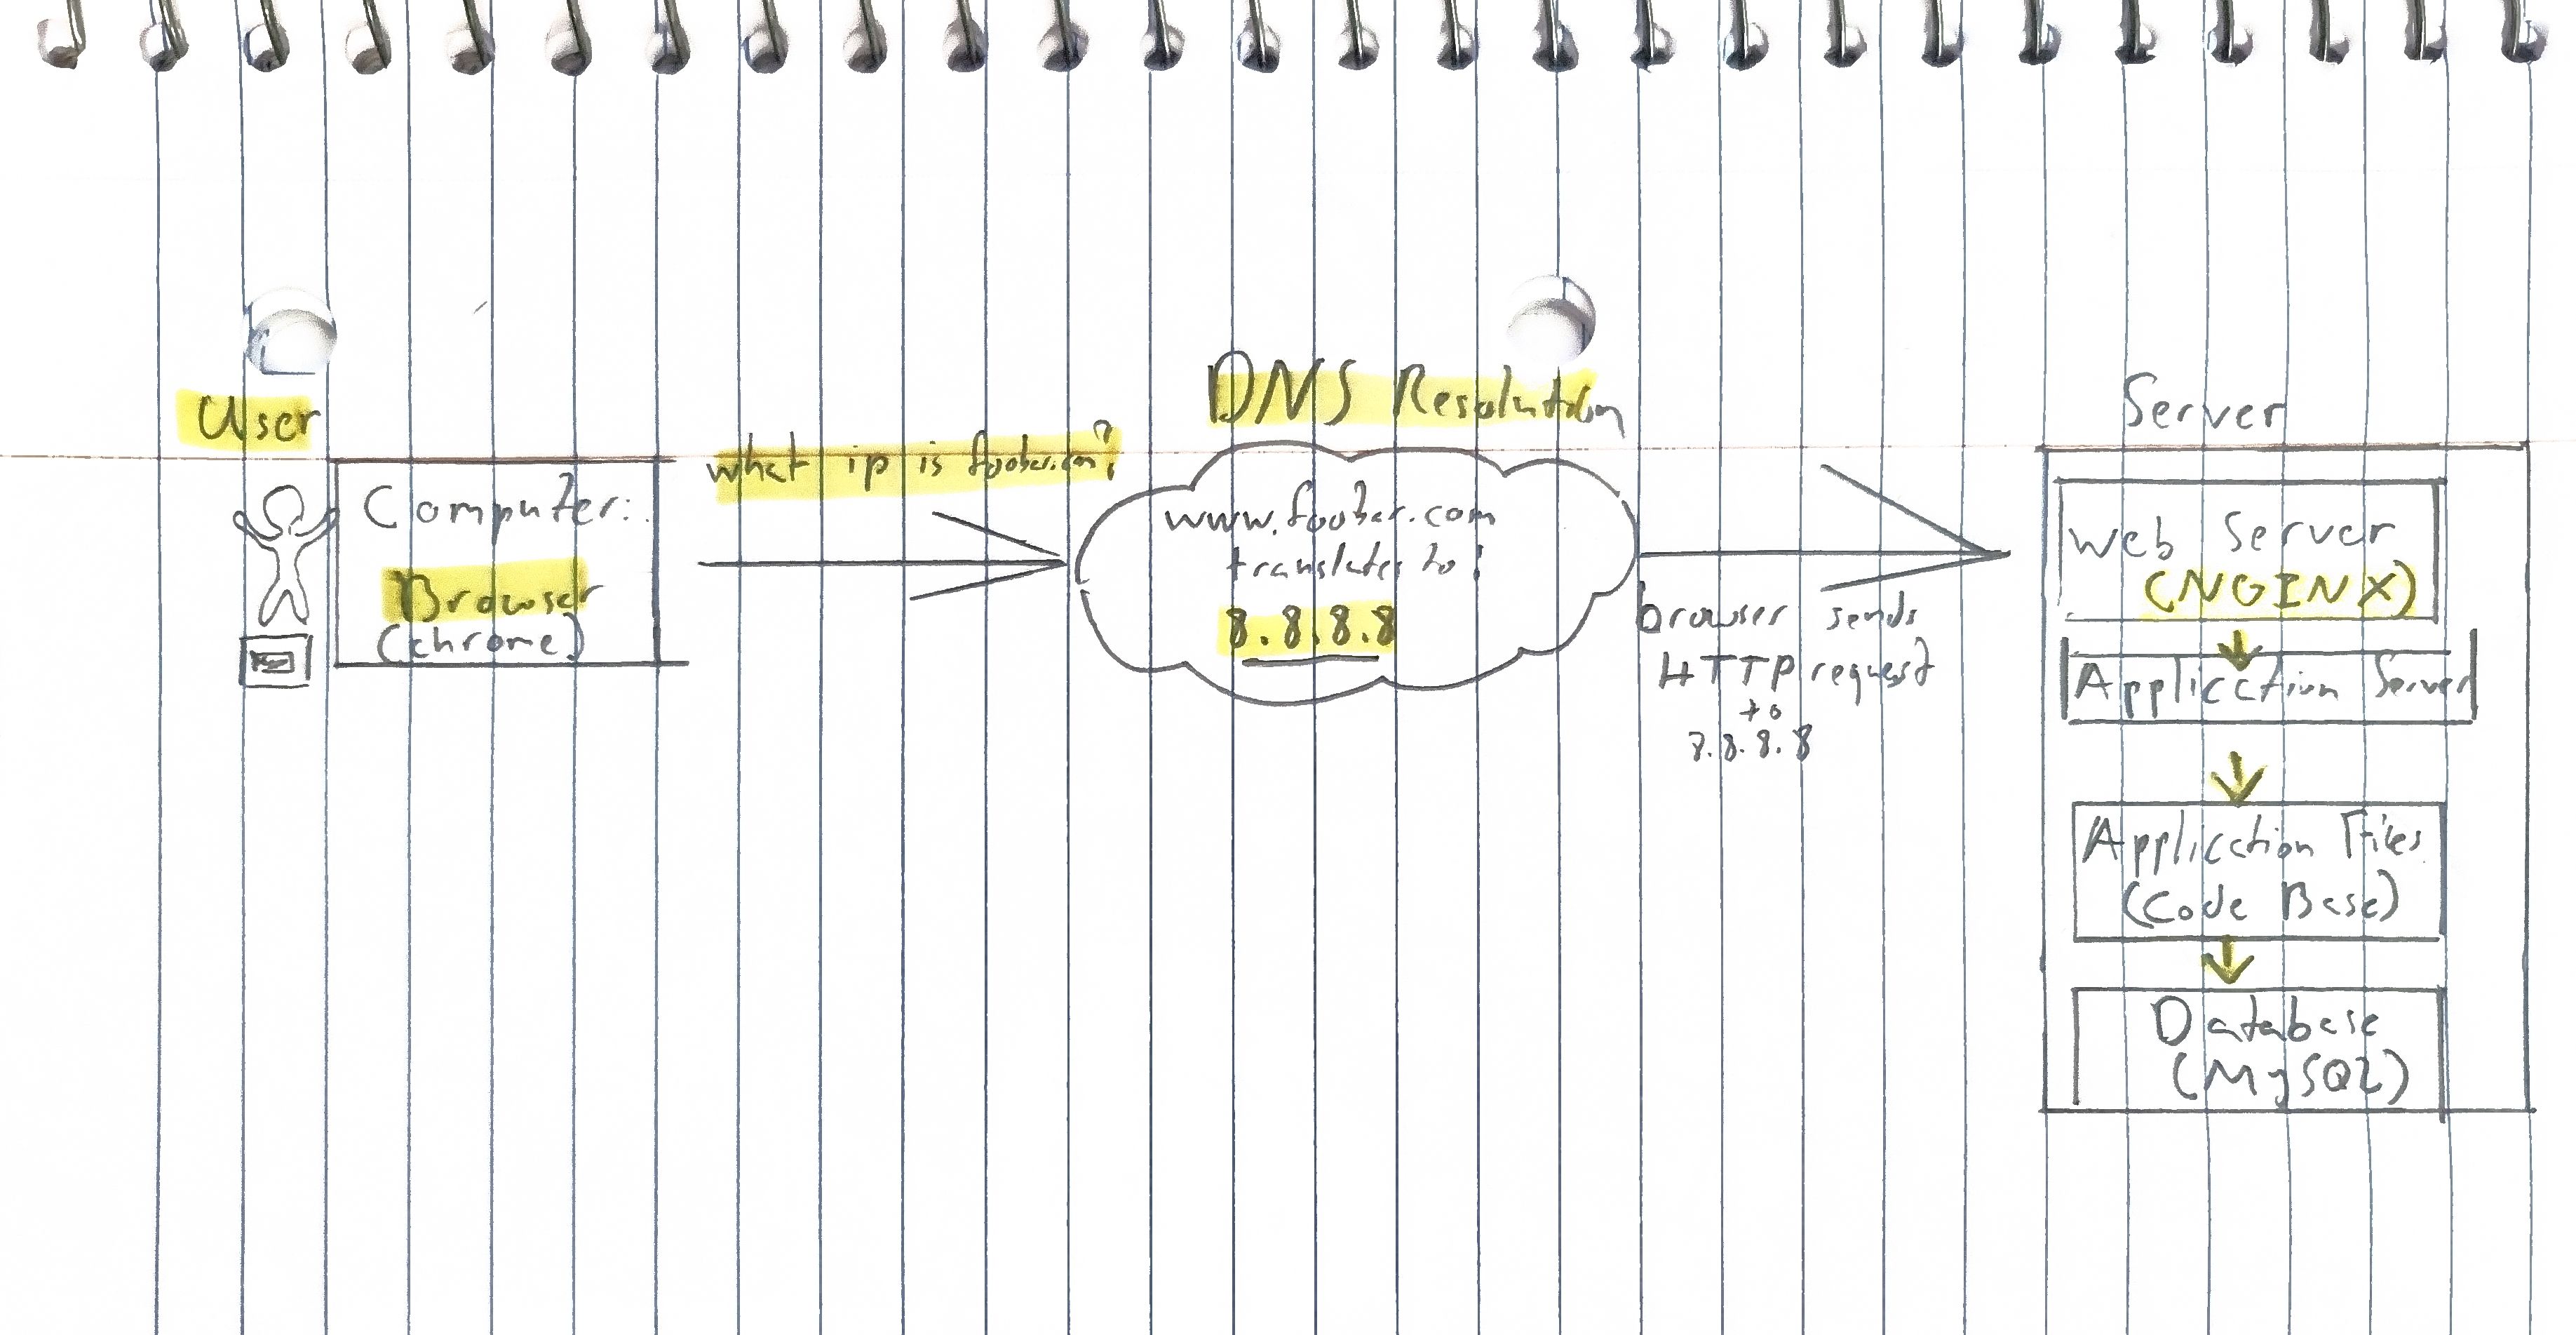 User
Computer:
Browser
(chrome)
what ip is foobar.com?
DNS Resolution
www.foobar.com
translates to:
8.8.8.8
browser sends
HTTP request
to
8.8.8.8
Server
Web Server
(NGINX)
Application Server
Application Files
(Code Base)
Database
(MySQL)